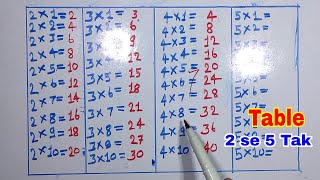 2×1=2
2×2=4
2×3=6
2×4=8
2×5=10
2×6=12
2×7=14
2×8=16
2×9=18
2×10=20
3×1=3
3×2=6
3×3=9
3×4=12
3×5=15
3×6=18
3×7=21
3×8=24
3×9=27
3×10=30
4×1=4
4×2=8
4×3=12
4×4=16
4×5=20
4×6=24
4×7=28
4×8=32
4×9=36
4×10=40
5×1=
5×2=
5×3=
5×4=
5×5=
5×6=
5×7=
5×10=
Table
2 se 5 Tak